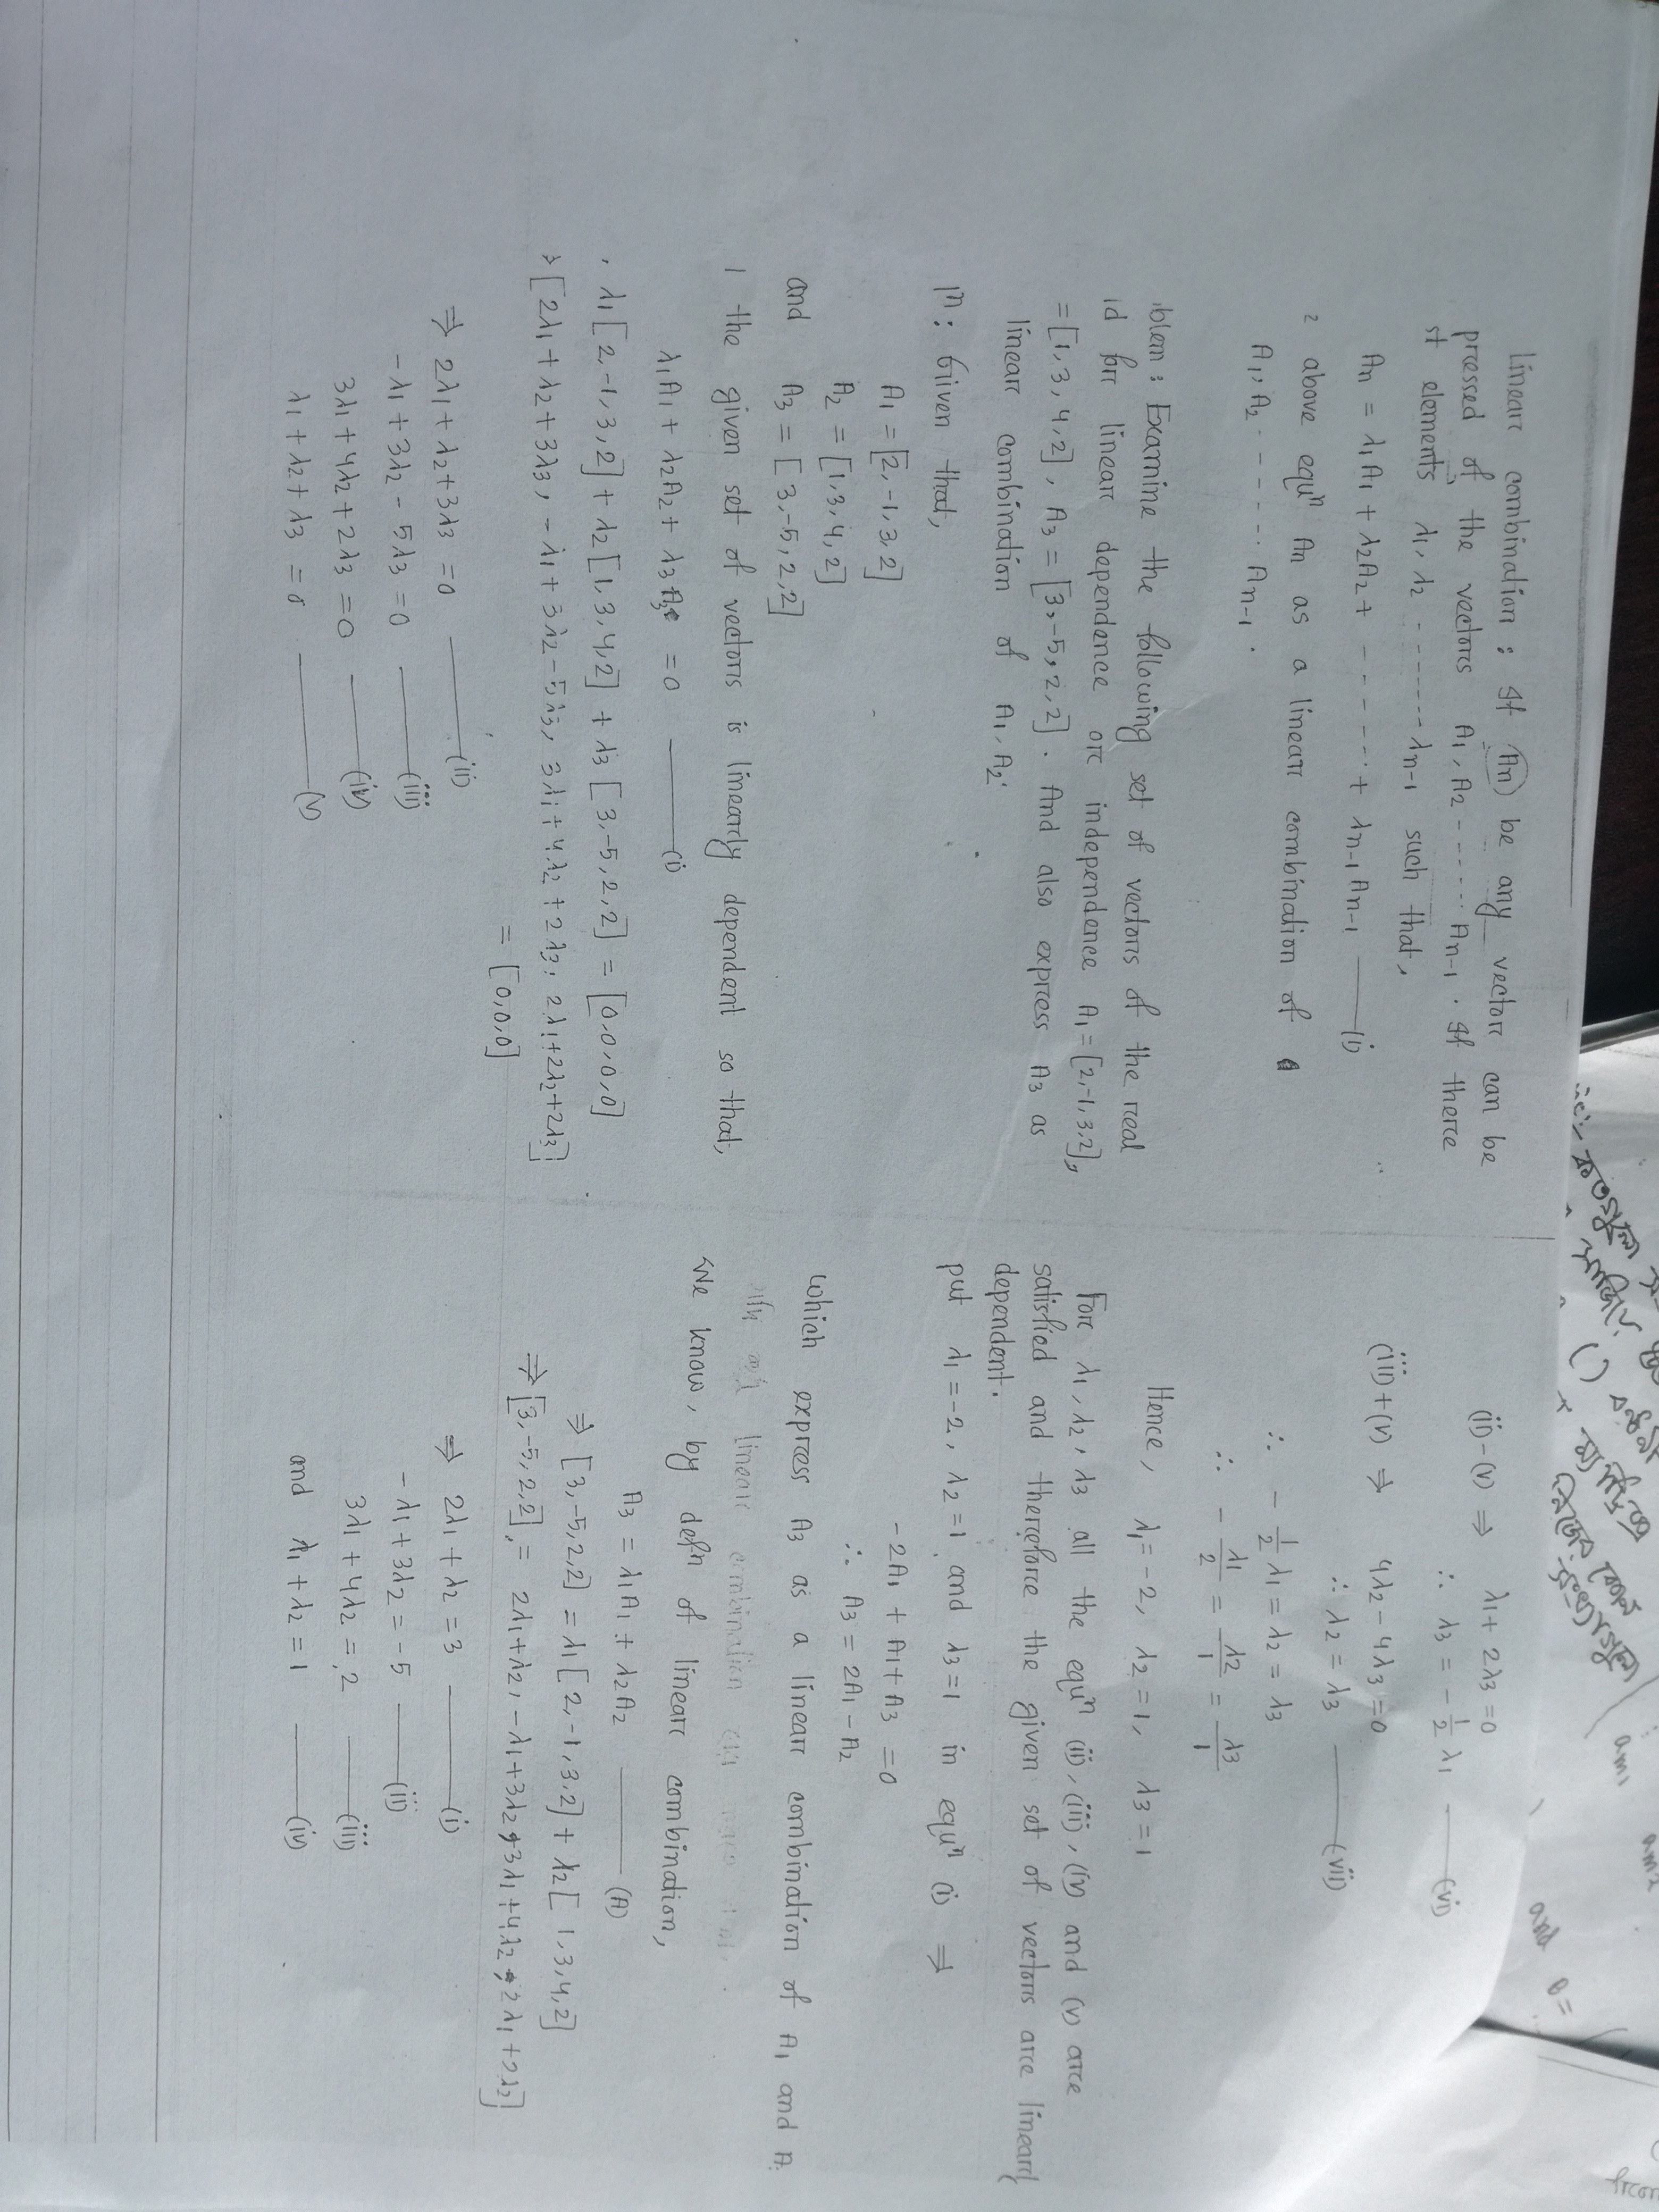 Linear combination : If An be any vector can be
pressed of the vectors A1, A2 ------- An-1 . If there
st elements λ1, λ2 -------- λn-1 such that,
An = λ1A1 + λ2A2 + ------- + λn-1 An-1 ——— (i)
above equⁿ An as a linear combination of
A1, A2 ------ An-1 .
blem : Examine the following set of vectors of the real
ld for linear dependence or independence A1 = [2,-1,3,2],
= [1,3,4,2], A3 = [3,-5,2,2] . And also express A3 as
linear combination of A1, A2.
lⁿ : Given that,
A1 = [2,-1,3,2]
A2 = [1,3,4,2]
and A3 = [3,-5,2,2]
the given set of vectors is linearly dependent so that,
λ1A1 + λ2A2 + λ3A3 = 0 ——— (i)
λ1 [2,-1,3,2] + λ2 [1,3,4,2] + λ3 [3,-5,2,2] = [0,0,0,0]
⇒ [2λ1 + λ2 + 3λ3, -λ1 + 3λ2 - 5λ3, 3λ1 + 4λ2 + 2λ3, 2λ1+2λ2+2λ3]
= [0,0,0]
⇒ 2λ1 + λ2 + 3λ3 = 0 ——— (ii)
-λ1 + 3λ2 - 5λ3 = 0 ——— (iii)
3λ1 + 4λ2 + 2λ3 = 0 ——— (iv)
λ1 + λ2 + λ3 = 0 ——— (v)
(ii) - (v) ⇒ λ1 + 2λ3 = 0
∴ λ3 = - 1/2 λ1 ——— (vi)
(iii) + (v) ⇒ 4λ2 - 4λ3 = 0
∴ λ2 = λ3 ——— (vii)
∴ - 1/2 λ1 = λ2 = λ3
∴ - λ1/2 = λ2/1 = λ3/1
Hence, λ1 = -2, λ2 = 1, λ3 = 1
For λ1, λ2, λ3 all the equⁿ (ii), (iii), (iv) and (v) are
satisfied and therefore the given set of vectors are linearly
dependent.
put λ1 = -2, λ2 = 1 and λ3 = 1 in equⁿ (i) ⇒
-2A1 + A1 + A3 = 0
∴ A3 = 2A1 - A2
which express A3 as a linear combination of A1 and A
linear combination
We know, by defⁿ of linear combination,
A3 = λ1A1 + λ2A2 ——— (A)
⇒ [3,-5,2,2] = λ1 [2,-1,3,2] + λ2 [1,3,4,2]
⇒ [3,-5,2,2] = 2λ1+λ2, -λ1+3λ2, 3λ1+4λ2, 2λ1+2λ2]
⇒ 2λ1 + λ2 = 3 ——— (i)
-λ1 + 3λ2 = -5 ——— (ii)
3λ1 + 4λ2 = 2 ——— (iii)
and λ1 + λ2 = 1 ——— (iv)
কতগুলো
সাজিয়ে
( )
ম্যাট্রিক্স
am1
am2
and B =